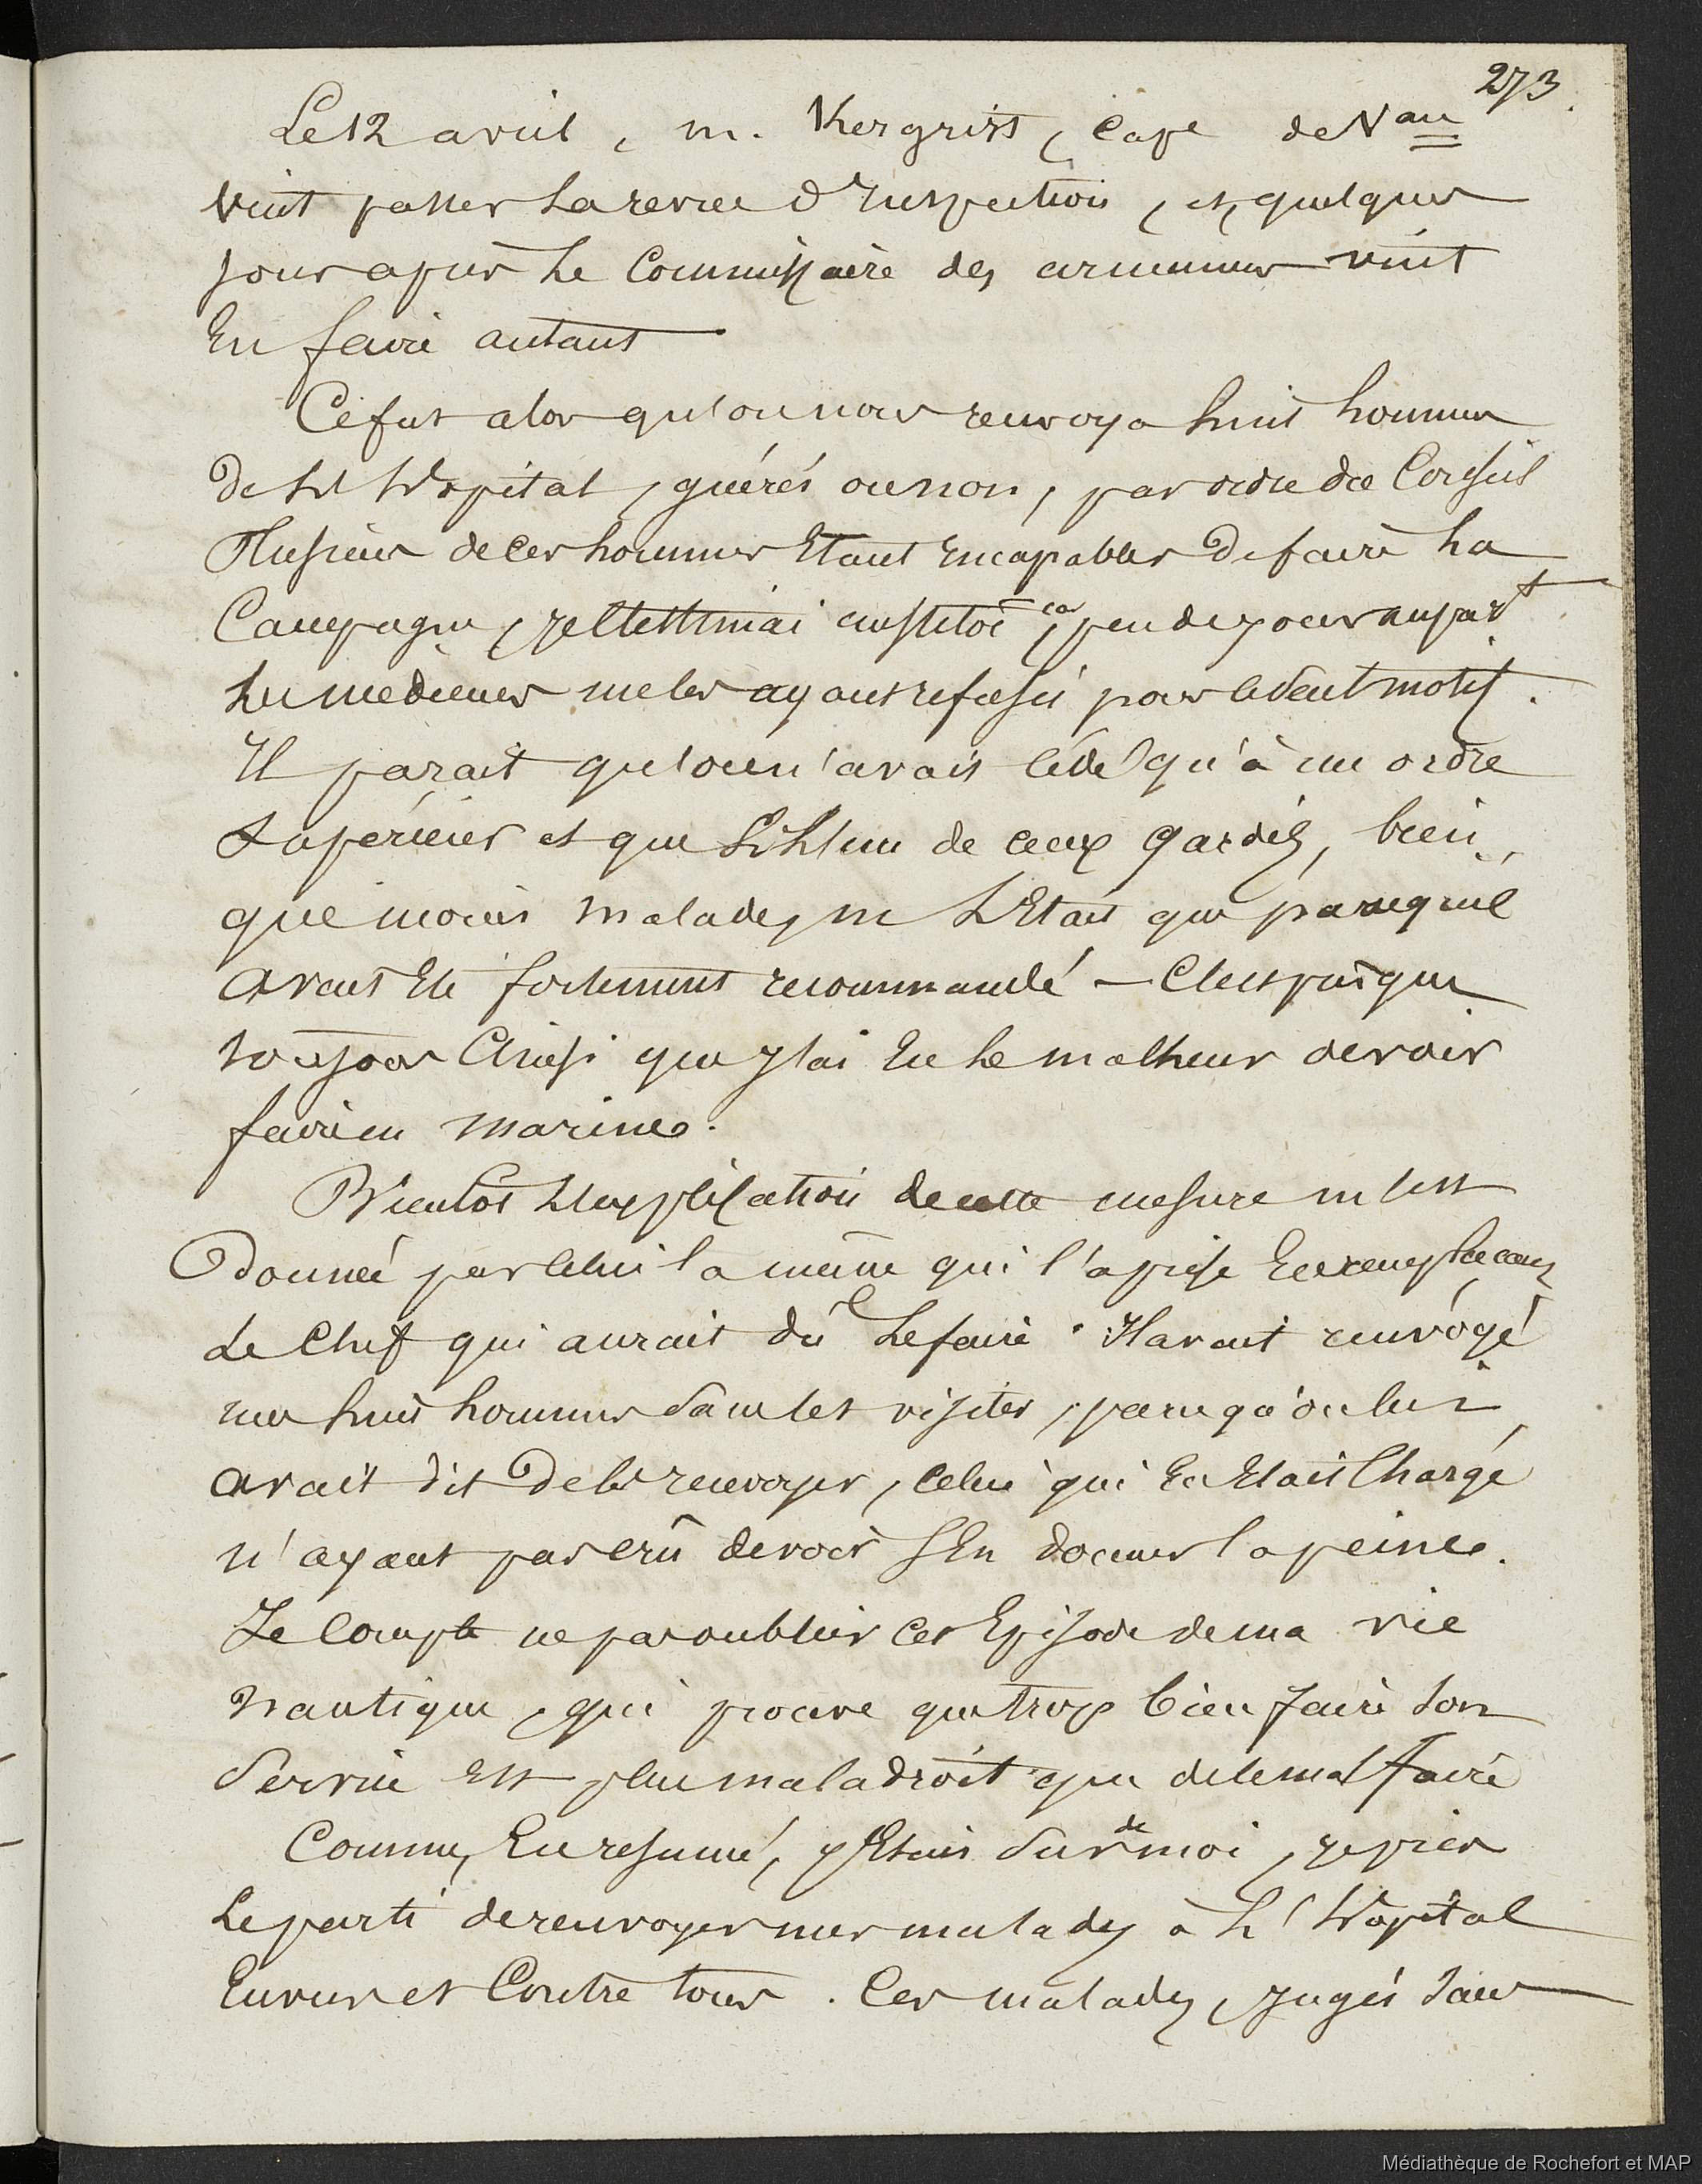 273.
Le 12 avril, m. Kergrist, cape de Vau
vint passer la revue d'Inspection, et, quelques
jours après le Commissaire des armemens vint
En faire autant
Ce fut alors qu'on nous renvoya huit hommes
de L'Hopital, guérés ou non, par ordre du Conseil
Plusieurs de ces hommes Etant Incapables de faire La
Campagne, je m'étonnai car, peu de jours aupart
les médecins me les ayant refusés pour le seul motif.
Il parait qu'on n'avait cédé qu'à un ordre
Supérieur et que si L'un de ceux gardés, bien
que moins malade, ne L'Etait que parcequ'il
avait Eté fortement recommandé — C'est presque
toujours Ainsi que j'ai Eu Le malheur de voir
faire en marine.
Bientôt L'explication de cette mesure m'est
donnée par celui là même qui l'a prise En remplacant
Le Chef qui aurait dû Le faire. Il avait renvoyé
mes huit hommes Sans les visiter, parce qu'on lui
avait dit De les renvoyer, Celui qui En Etait Chargé
n'ayant pas crû devoir S'En donner la peine.
Je Compte ne pas oublier cet Episode de ma vie
nautique, qui prouve que trop bien faire son
Service Est plus maladroit que de le mal faire
Comme, En resumé, j'Etais Sur de moi, je pris
Le parti de renvoyer mes malades à L'Hôpital
Envers et Contre tous. Ces malades, jugés sans
Médiathèque de Rochefort et MAP